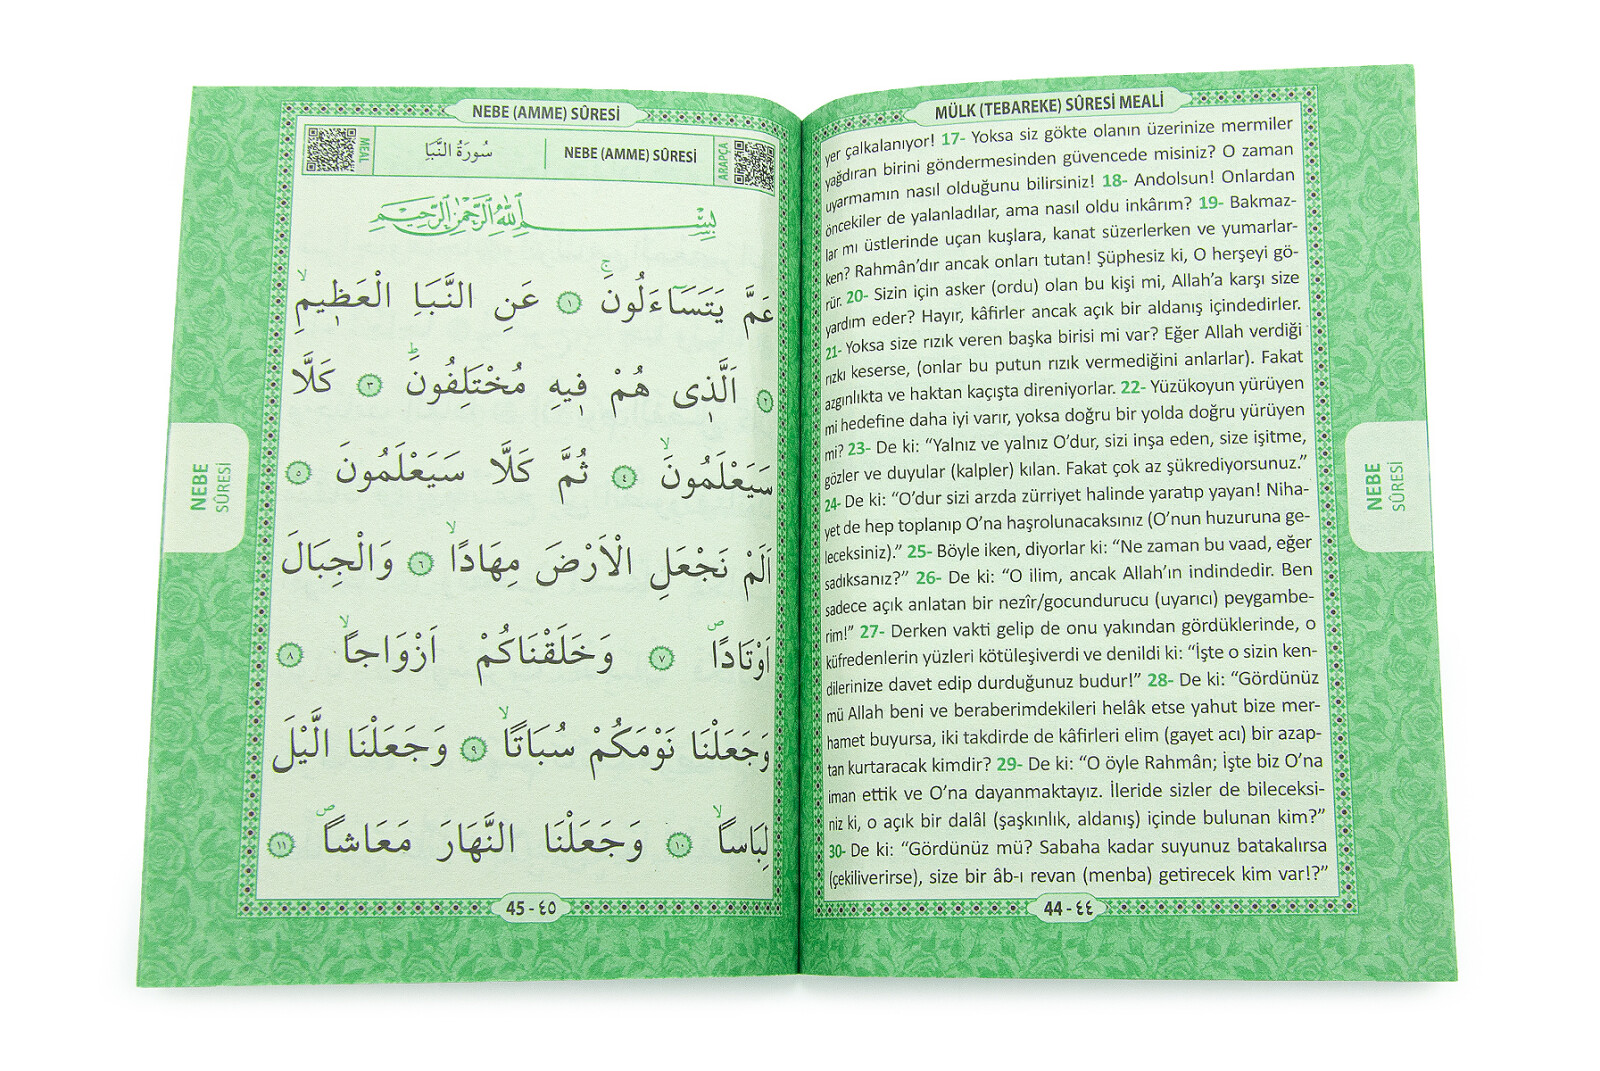 NEBE (AMME) SÛRESİ
MEAL
سُورَةُ النَّبَأِ
NEBE (AMME) SÛRESİ
ARAPÇA
بِسْمِ اللّٰهِ الرَّحْمٰنِ الرَّحِيمِ
عَمَّ يَتَسَٓاءَلُونَۚ ﴿١﴾ عَنِ النَّبَأِ الْعَظ۪يمِۙ
﴿٢﴾ اَلَّذ۪ى هُمْ ف۪يهِ مُخْتَلِفُونَۜ ﴿٣﴾ كَلَّا
سَيَعْلَمُونَۙ ﴿٤﴾ ثُمَّ كَلَّا سَيَعْلَمُونَ ﴿٥﴾
اَلَمْ نَجْعَلِ الْاَرْضَ مِهَادًاۙ ﴿٦﴾ وَالْجِبَالَ
اَوْتَادًاۖ ﴿٧﴾ وَخَلَقْنَاكُمْ اَزْوَاجًاۙ ﴿٨﴾
وَجَعَلْنَا نَوْمَكُمْ سُبَاتًاۙ ﴿٩﴾ وَجَعَلْنَا الَّيْلَ
لِبَاسًاۙ ﴿١٠﴾ وَجَعَلْنَا النَّهَارَ مَعَاشًاۖ ﴿١١﴾
45 - ٤٥
NEBE
SÛRESİ
MÜLK (TEBAREKE) SÛRESİ MEALİ
yer çalkalanıyor! 17- Yoksa siz gökte olanın üzerinize mermiler
yağdıran birini göndermesinden güvencede misiniz? O zaman
uyarmamın nasıl olduğunu bilirsiniz! 18- Andolsun! Onlardan
öncekiler de yalanladılar, ama nasıl oldu inkârım? 19- Bakmaz-
lar mı üstlerinde uçan kuşlara, kanat süzerlerken ve yumarlar-
ken? Rahmân’dır ancak onları tutan! Şüphesiz ki, O herşeyi gö-
rür. 20- Sizin için asker (ordu) olan bu kişi mi, Allah’a karşı size
yardım eder? Hayır, kâfirler ancak açık bir aldanış içindedirler.
21- Yoksa size rızık veren başka birisi mi var? Eğer Allah verdiği
rızkı keserse, (onlar bu putun rızık vermediğini anlarlar). Fakat
azgınlıkta ve haktan kaçışta direniyorlar. 22- Yüzükoyun yürüyen
mi hedefine daha iyi varır, yoksa doğru bir yolda doğru yürüyen
mi? 23- De ki: “Yalnız ve yalnız O’dur, sizi inşa eden, size işitme,
gözler ve duyular (kalpler) kılan. Fakat çok az şükrediyorsunuz.”
24- De ki: “O’dur sizi arzda zürriyet halinde yaratıp yayan! Niha-
yet de hep toplanıp O’na haşrolunacaksınız (O’nun huzuruna ge-
leceksiniz).” 25- Böyle iken, diyorlar ki: “Ne zaman bu vaad, eğer
sadıksanız?” 26- De ki: “O ilim, ancak Allah’ın indindedir. Ben
sadece açık anlatan bir nezîr/gocundurucu (uyarıcı) peygambe-
rim!” 27- Derken vakti gelip de onu yakından gördüklerinde, o
küfredenlerin yüzleri kötüleşiverdi ve denildi ki: “İşte o sizin ken-
dilerinize davet edip durduğunuz budur!” 28- De ki: “Gördünüz
mü Allah beni ve beraberimdekileri helâk etse yahut bize mer-
hamet buyursa, iki takdirde de kâfirleri elim (gayet acı) bir azap-
tan kurtaracak kimdir? 29- De ki: “O öyle Rahmân; İşte biz O’na
iman ettik ve O’na dayanmaktayız. İleride sizler de bileceksi-
niz ki, o açık bir dalâl (şaşkınlık, aldanış) içinde bulunan kim?”
30- De ki: “Gördünüz mü? Sabaha kadar suyunuz batakalırsa
(çekiliverirse), size bir âb-ı revan (menba) getirecek kim var!?”
44 - ٤٤
NEBE
SÛRESİ